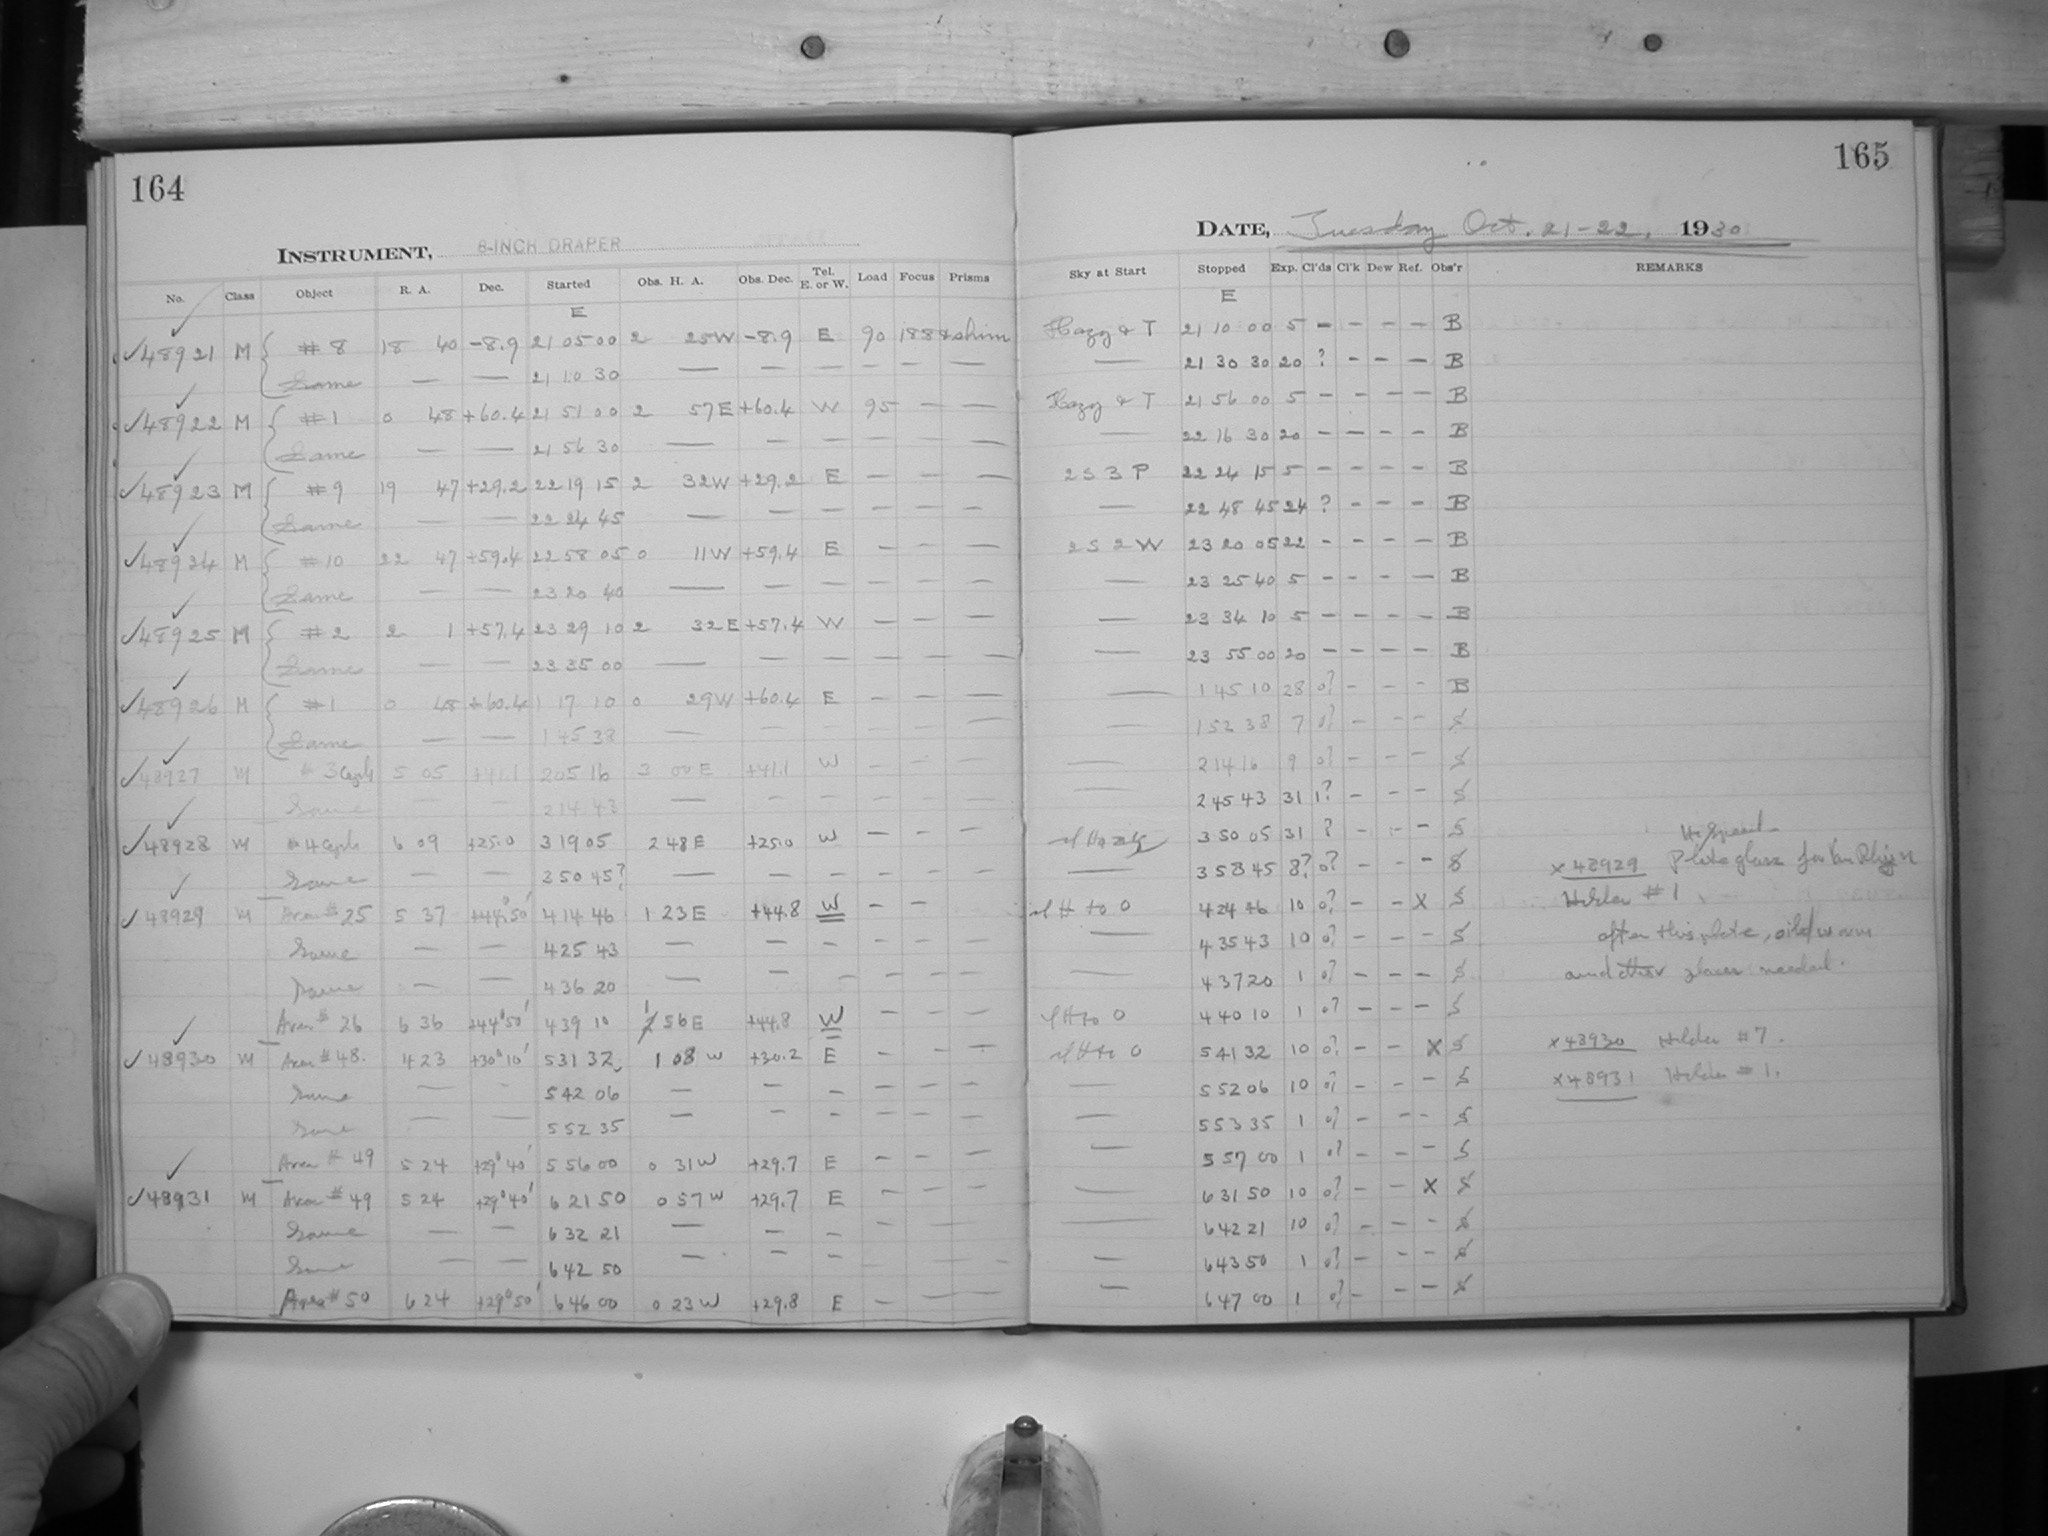 164
INSTRUMENT, 8-INCH DRAPER
No. Class Object R. A. Dec. Started Obs. H. A. Obs. Dec. Tel. E. or W. Load Focus Prisms
E
✓48921 M { #8 18 40 -8.9 21 05 00 2 25W -8.9 E 90 188 shim
Same — — 21 10 30 — — — — — —
✓48922 M { #1 0 48 +60.4 21 51 00 2 57E +60.4 W 95 — —
Same — — 21 56 30 — — — — — —
✓48923 M { #9 19 47 +29.2 22 19 15 2 32W +29.2 E — — —
Same — — 22 24 45 — — — — — —
✓48924 M { #10 22 47 +59.4 22 58 05 0 11W +59.4 E — — —
Same — — 23 20 40 — — — — — —
✓48925 M { #2 2 1 +57.4 23 29 10 2 32E +57.4 W — — —
Same — — 23 35 00 — — — — — —
✓48926 M { #1 0 48 +60.4 1 17 10 0 29W +60.4 E — — —
Same — — 1 45 38 — — — — — —
✓48927 M #3 Ceph 5 05 +41.1 2 05 16 3 00E +41.1 W — — —
Same — — 2 14 43 — — — — — —
✓48928 M #4 Ceph 6 09 +25.0 3 19 05 2 48E +25.0 W — — —
Same — — 3 50 45? — — — — — —
✓48929 M Area #25 5 37 +44°50' 4 14 46 1 23E +44.8 W — —
Same — — 4 25 43 — — — — — —
Same — — 4 36 20 — — — — — —
Area #26 6 36 +44°50' 4 39 10 1 56E +44.8 W — — —
✓48930 M Area #48. 4 23 +30°10' 5 31 32 1 08W +30.2 E — — —
Same — — 5 42 06 — — — — — —
Same — — 5 52 35 — — — — — —
Area #49 5 24 +29°40' 5 56 00 0 31W +29.7 E — — —
✓48931 M Area #49 5 24 +29°40' 6 21 50 0 57W +29.7 E — — —
Same — — 6 32 21 — — — — —
Same — — 6 42 50 — — — — — —
Area #50 6 24 +29°50' 6 46 00 0 23W +29.8 E — — —
165
DATE, Tuesday Oct. 21-22, 1930
Sky at Start Stopped Exp. Cl'ds Cl'k Dew Ref. Obs'r REMARKS
E
Hazy & T 21 10 00 5 — — — — B
— 21 30 30 20 ? — — — B
Hazy & T 21 56 00 5 — — — — B
— 22 16 30 20 — — — — B
2 S 3 P 22 24 15 5 — — — — B
— 22 48 45 24 ? — — — B
2 S 2 W 23 20 05 22 — — — — B
— 23 25 40 5 — — — — B
— 23 34 10 5 — — — — B
— 23 55 00 20 — — — — B
— 1 45 10 28 0? — — — B
— 1 52 38 7 0? — — — S
— 2 14 16 9 0? — — — S
— 2 45 43 31 1? — — — S
3 50 05 31 ? — — — S
— 3 58 45 8? 0? — — — S x48929 Plate glass for Van Rhijn
H to 0 4 24 46 10 0? — — X S Holder #1
— 4 35 43 10 0? — — — S after this plate,
— 4 37 20 1 0? — — — S and other glass needed.
H to 0 4 40 10 1 0? — — — S
H to 0 5 41 32 10 0? — — X S x48930 Holder #7.
— 5 52 06 10 0? — — — S x48931 Holder #1.
— 5 53 35 1 0? — — — S
— 5 57 00 1 0? — — — S
— 6 31 50 10 0? — — X S
— 6 42 21 10 0? — — — S
— 6 43 50 1 0? — — — S
— 6 47 00 1 0? — — — S